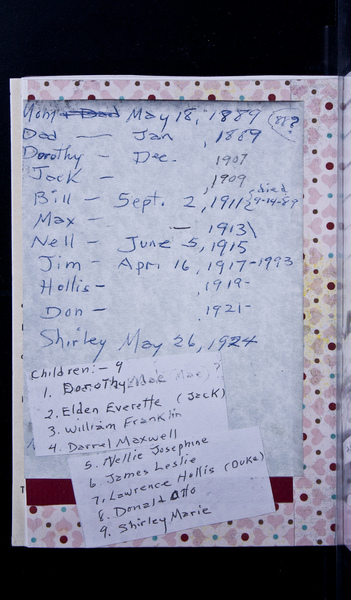 Mom + Dad May 18, 1889 (88?)
Dad — Jan , 1889
Dorothy - Dec. 1907
Jack - , 1909
Bill - Sept. 2, 1911 died 9-14-89
Max - — , 1913
Nell - June 5, 1915
Jim - Apr. 16, 1917-1993
Hollis - , 1919-
Don - , 1921-
Shirley May 26, 1924
Children: - 9
1. Dorothy Mae
2. Elden Everette (Jack)
3. William Franklin
4. Darrel Maxwell
5. Nellie Josephine
6. James Leslie
7. Lawrence Hollis (Duke)
8. Donald Otto
9. Shirley Marie